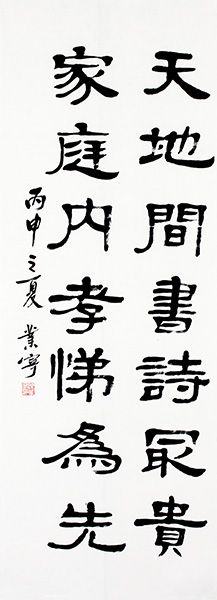 天地間書詩冣貴
家庭内孝悌為先
丙申之夏 業寧